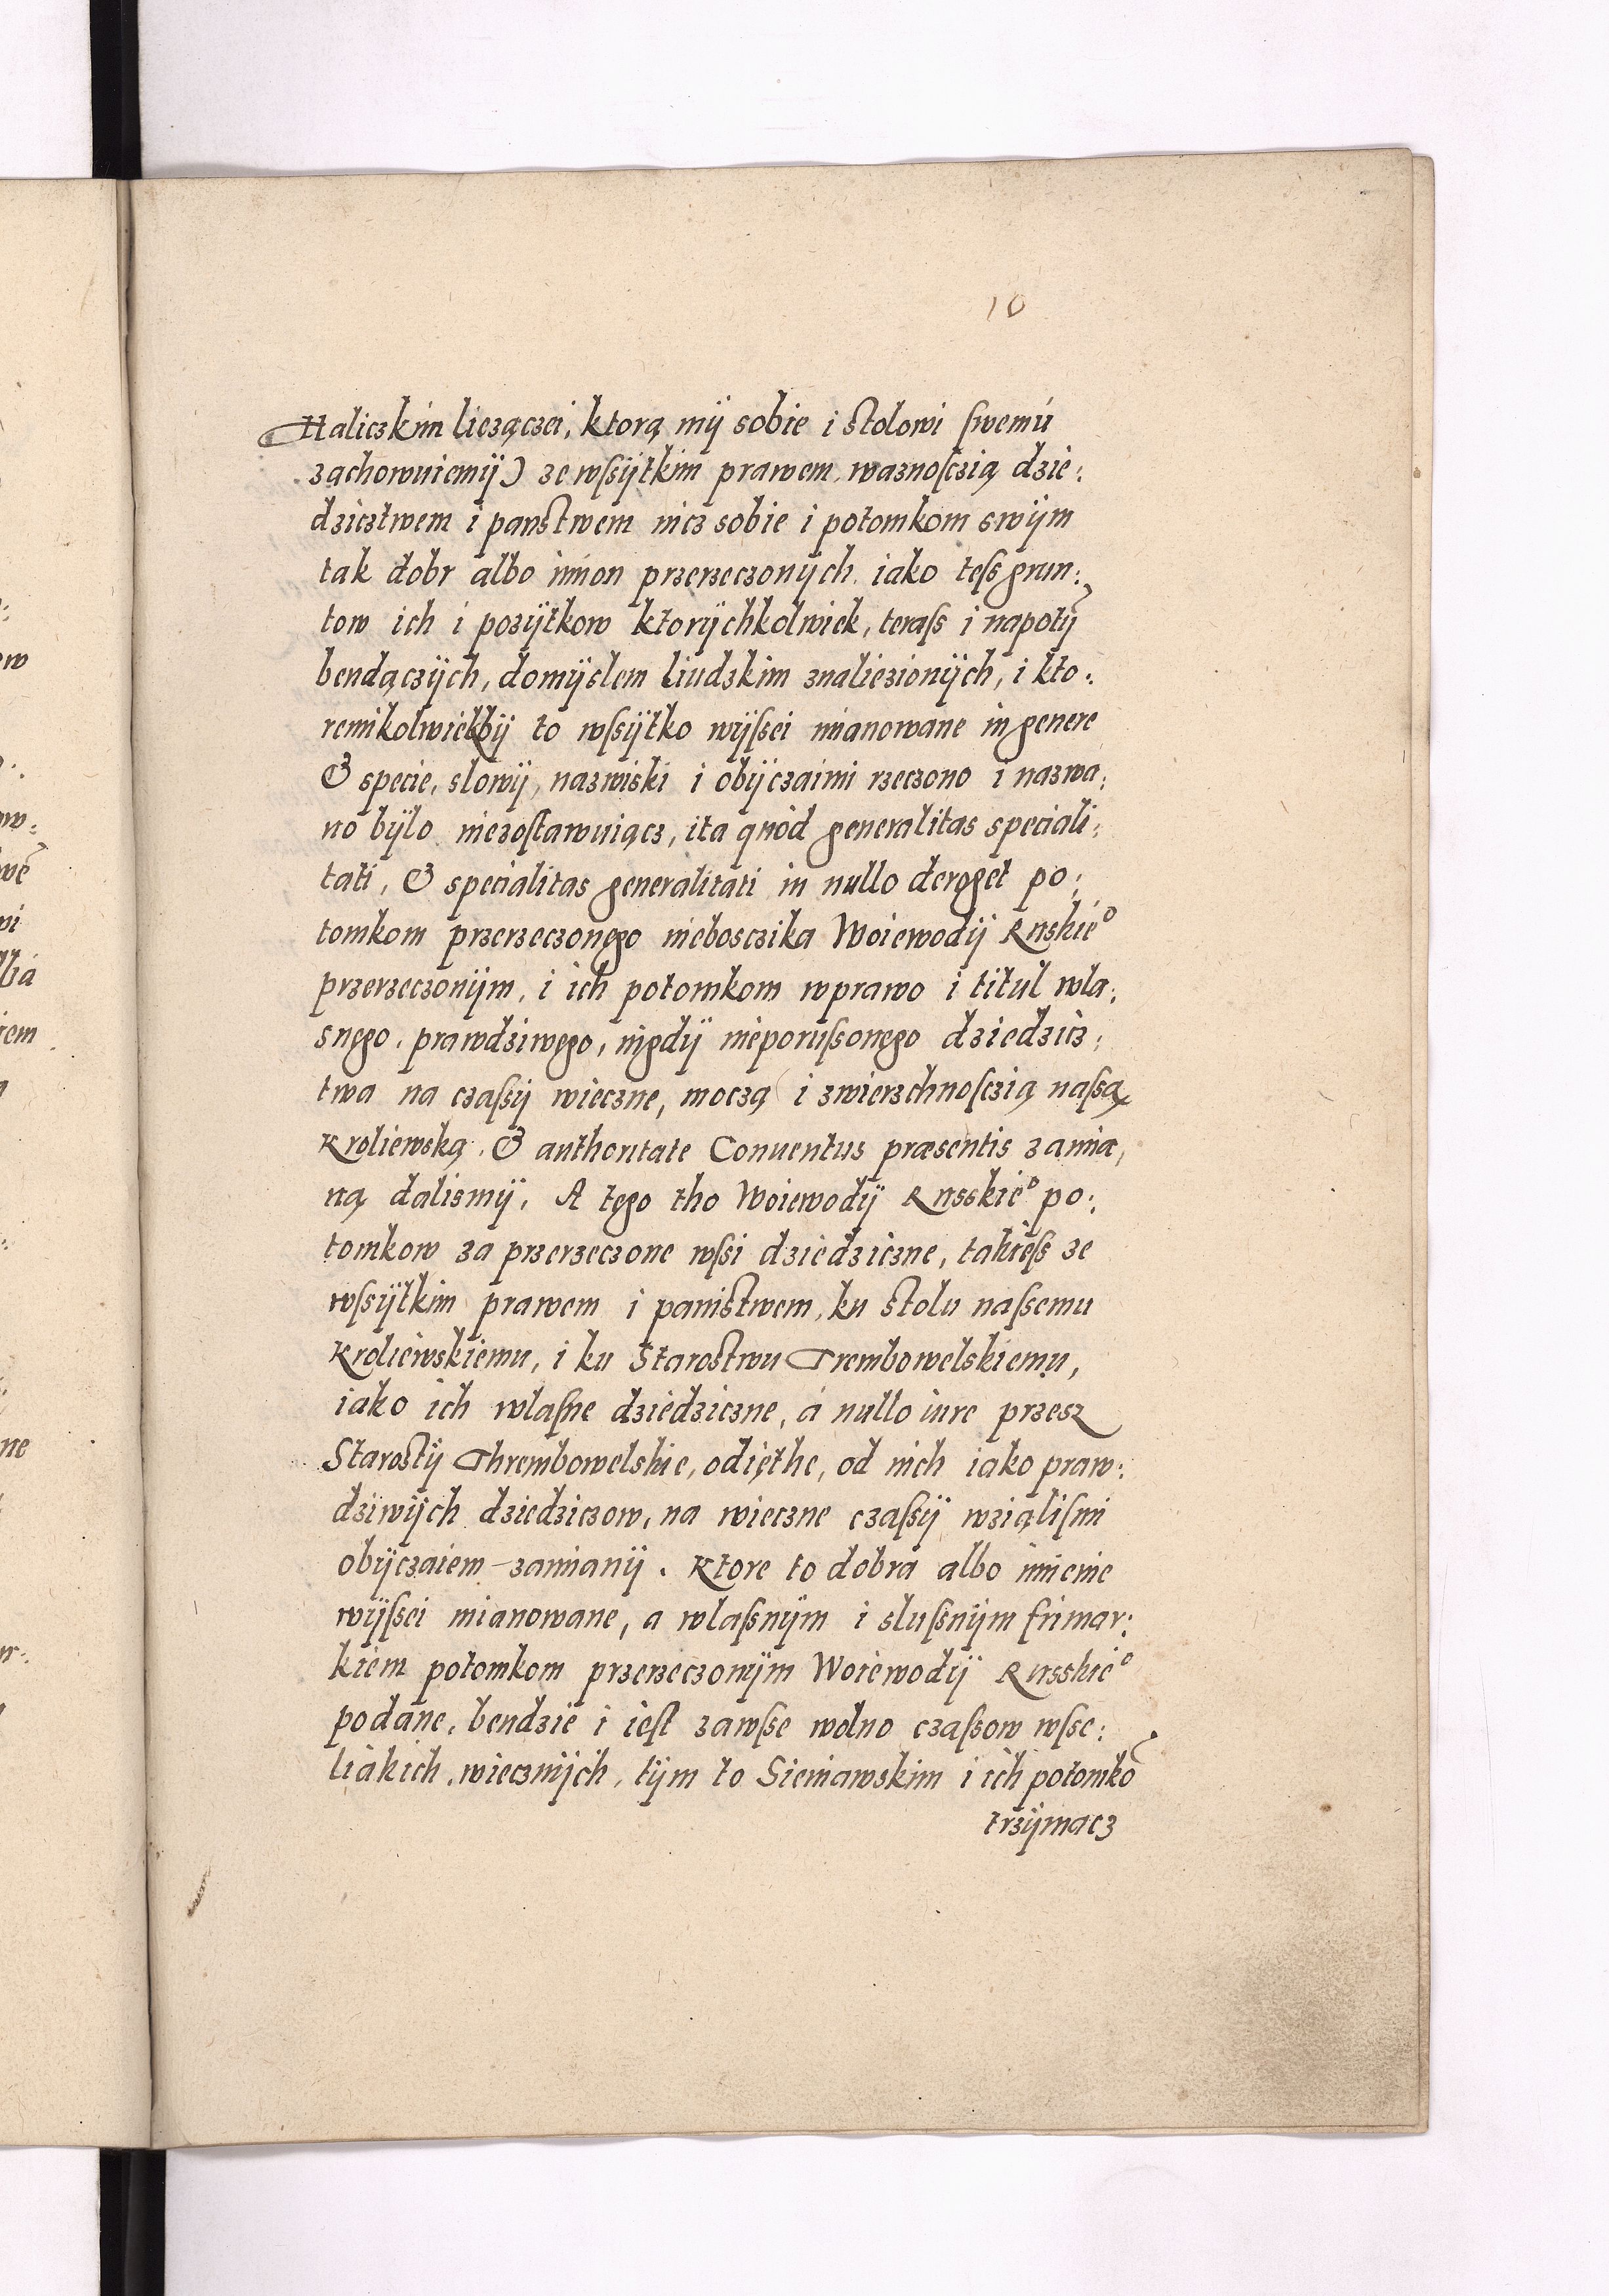 10
Haliczkim liezączei, ktorą mÿ sobie i stolowi swemú
ząchowuiemÿ) ze wssÿtkim prawem, waznosczią dzie:
dzicztwem i panstwem nicz sobie i potomkom swÿm
tak dobr albo imion przerzeczonÿch iako tess grun:
tow ich i pozÿtkow ktorÿchkolwiek, terass i napotÿ
bendączÿch, domÿslem liudzkim znaliezionÿch, i kto:
remikolwiekbÿ to wssÿtko wÿssei mianowane in genere
& specie, slowÿ, nazwiski i obÿczaimi rzeczono i nazwa:
no bÿlo niezostawuiącz, ita quòd generalitas speciali:
tati, & specialitas generalitati in nullo deroget po:
tomkom przerzeczonego niebosczika Woiewodÿ Ruskieº
przerzeczonÿm, i ich potomkom wprawo i titul wla:
snego, prawdziwego, nigdÿ nieporussonego dziedzicz:
twa na czassÿ wieczne, moczą i zwierzchnosczią nassą
Kroliewską, & authoritate Conuentus præsentis zamia,
ną dalismÿ. A tego tho Woiewodÿ Russkieº po:
tomkow za przerzeczone wssi dziedziczne, takiess ze
wssÿtkim prawem i panistwem, ku stolu nassemu
Kroliewskiemu, i ku Starostwu Trembowelskiemu,
iako ich wlasne dziedziczne, á nullo iure przesz
Starostÿ Thrembowelskie, odięthe, od nich iako praw:
dziwÿch dziedziczow, na wieczne czassÿ wzialismi
obÿczaiem zamianÿ. Ktore to dobra albo imienie
wÿssei mianowane, a wlassnÿm i slussnÿm frimar:
kiem potomkom przerzeczonÿm Woiewodÿ Russkieº
podane, bendzie i iest zawsse wolno czassow wsse:
liakich, wiecznÿch, tÿm to Sieniawskim i ich potomkõ
trzÿmacz